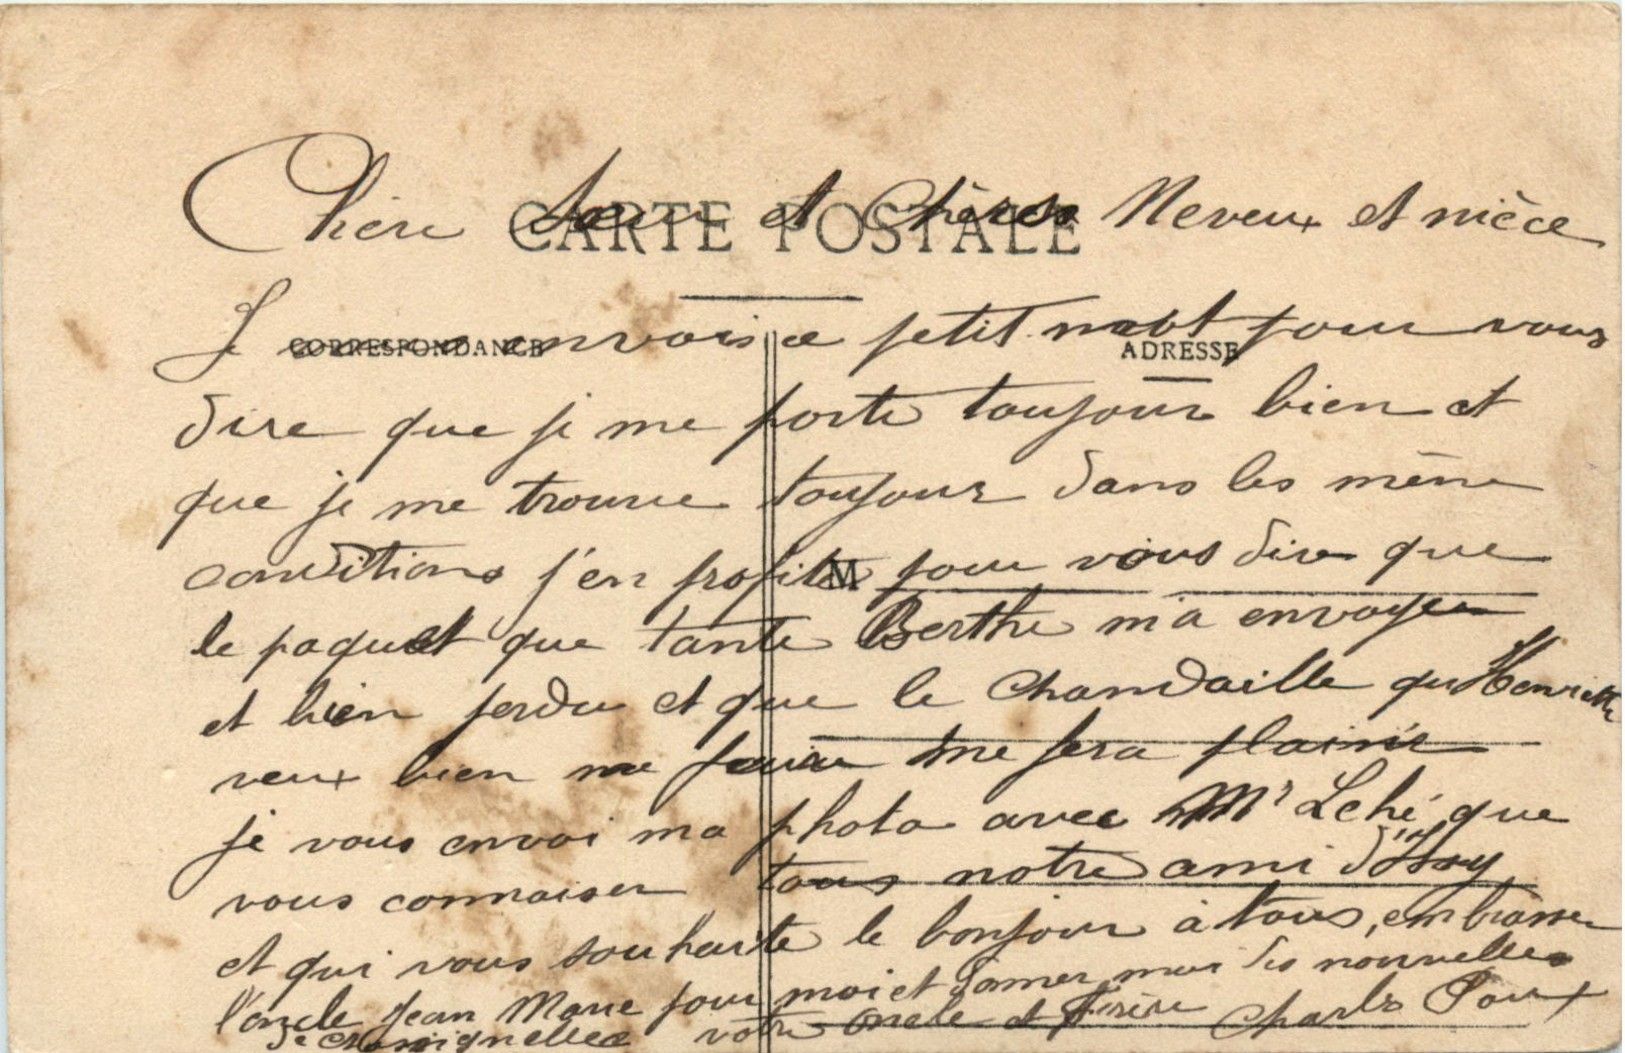 CARTE POSTALE
CORRESPONDANCE
ADRESSE
M
Chère Soeur et Chères Neveux et nièce
Je envois ce petit mot pour vous
dire que je me porte toujour bien et
que je me trouve toujour dans les même
conditions j'en profite pour vous dire que
le paquet que tante Berthe m'a envoyer
et bien perdu et que le Chandaille qu Henriette
veux bien me faire me fera plaisir
je vous envoi ma photo avec Mr Lché que
vous connaiser tous notre ami d'Issy
et qui vous souhaite le bonjour à tous, embrasser
l'oncle Jean Marie pour moi et donner moi des nouvelles
de votre Oncle et frère Charles